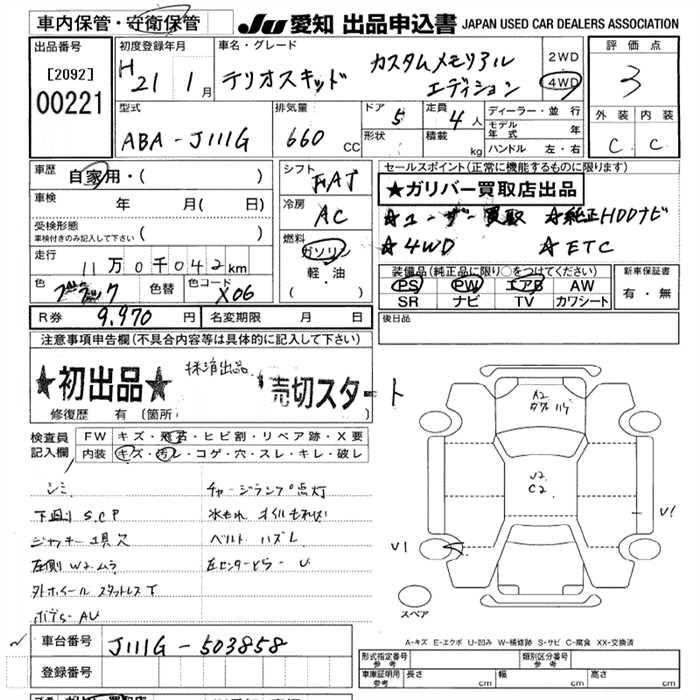 車内保管・守衛保管
JU 愛知 出品申込書 JAPAN USED CAR DEALERS ASSOCIATION
出品番号 初度登録年月 車名・グレード 評価点
[2092]
00221
H 21 1月
テリオスキッド カスタムメモリアル エディション
2WD
4WD
3
型式 排気量 ドア 定員 ディーラー・並行 外装 内装
ABA-J111G 660 CC 5 4人
モデル年式 年
形状 積載 kg ハンドル 左・右
C C
車歴 自家用・( ) シフト FAT セールスポイント(正常に機能するものに限ります)
★ガリバー買取店出品
車検 年 月(日) 冷房 AC
☆ユーザー買取 ☆純正HDDナビ
受検形態
車検付きのみ記入して下さい ( )
☆4WD ☆ETC
燃料 ガソリン 軽・油 ( )
走行 11万0千042km
装備品(純正品に限り○をつけてください) 新車保証書
色 ブラック 色替 色コード X06
PS PW エアB AW 有・無
SR ナビ TV カワシート
R券 9,970円 名変期限 月 日 後日品
注意事項申告欄(不具合内容等は具体的に記入して下さい)
★初出品★ 抹消出品 売切スタート
修復歴 有(箇所 )
検査員記入欄 FW キズ・飛石・ヒビ割・リペア跡・X要
内装 キズ・汚レ・コゲ・穴・スレ・キレ・破レ
シミ チャージランプ点灯
下廻り S.C.P 水もれ オイルもれ
ジャッキー工具欠 ベルト
左側 W2ムラ 左センターピラー U
外ホイール スタットレス
A2
J2
C2
U1
V1
スペア
A-キズ E-エクボ U-凹み W-補修跡 S-サビ C-腐食 XX-交換済
車台番号 J111G-503858
登録番号
形式指定番号 参考 類別区分番号 参考
車庫証明用 参考 長さ cm 幅 cm 高さ cm